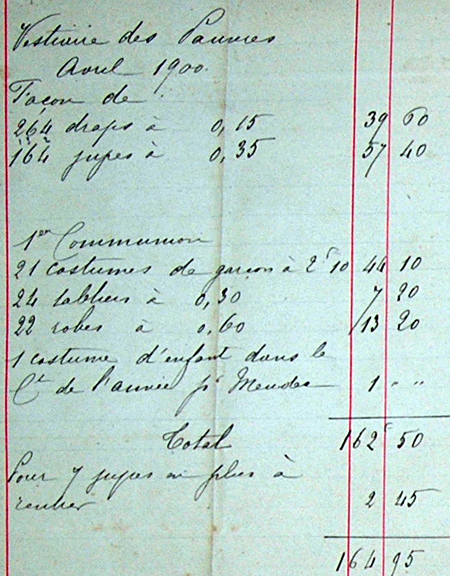 Vestiaire des Pauvres
Avril 1900.
Façon de
264 draps à 0,15 39 60
164 jupes à 0,35 57 40
1ère Communion
21 Costumes de garçon à 2f10 44 10
24 tabliers à 0,30 7 20
22 robes à 0,60 13 20
1 costume d'enfant dans le
Ct de l'année pr Mendes 1 " "
Total 162f 50
Pour 7 jupes en plus à
rentrer 2 45
164 95